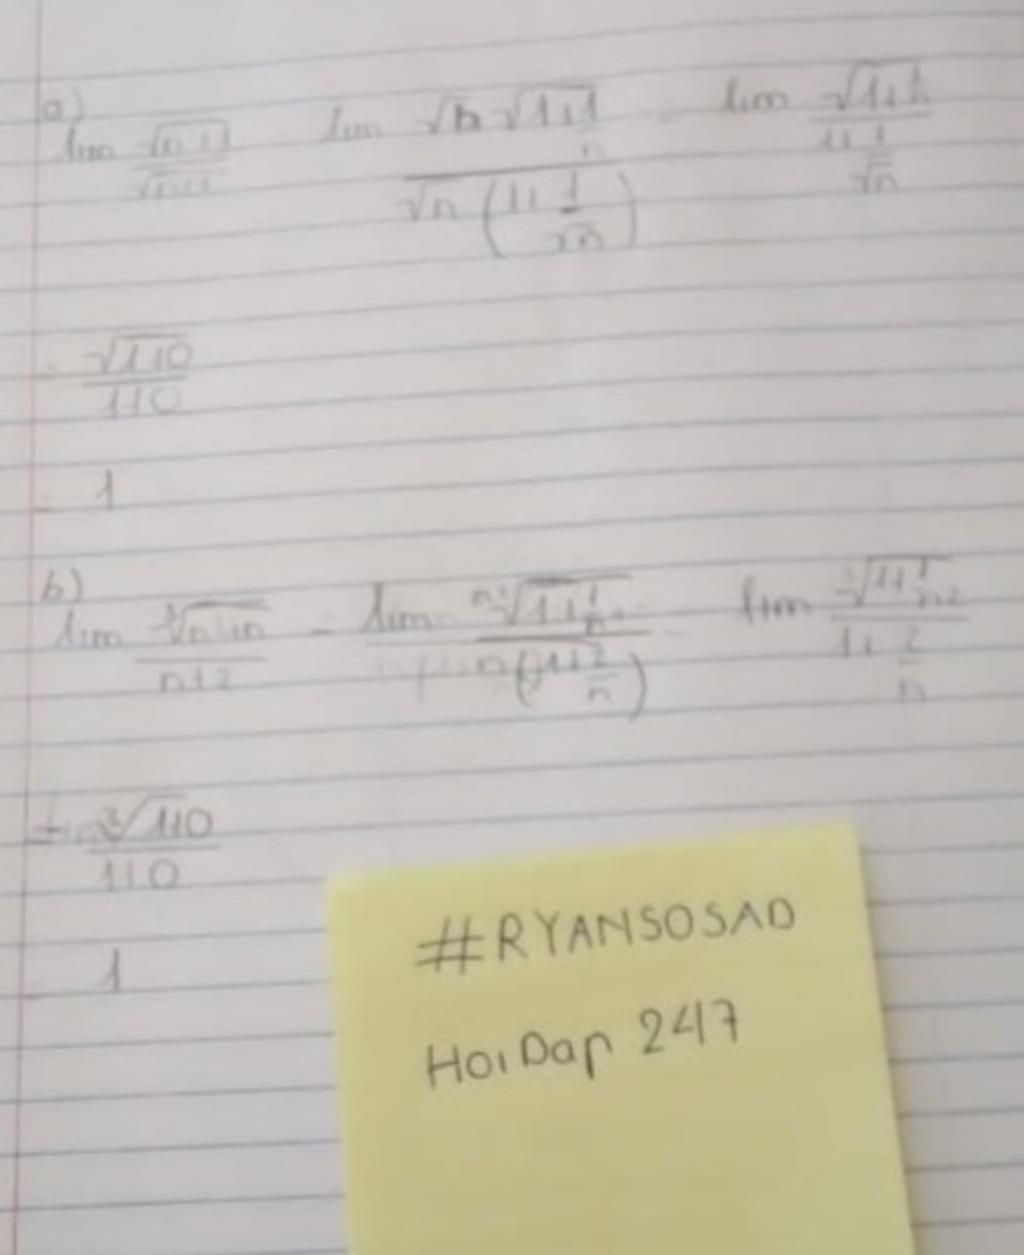 a)
lim √n+1 / √n+1 = lim √n √1+1/n / √n (1+1/√n) = lim √1+1/n / 1+1/√n
= √1+0 / 1+0
= 1
b)
lim ³√n³+n / n+2 = lim n³√1+1/n² / n(1+2/n) = lim ³√1+1/n² / 1+2/n
= ³√1+0 / 1+0
= 1
#RYANSOSAD
HoiDap 247